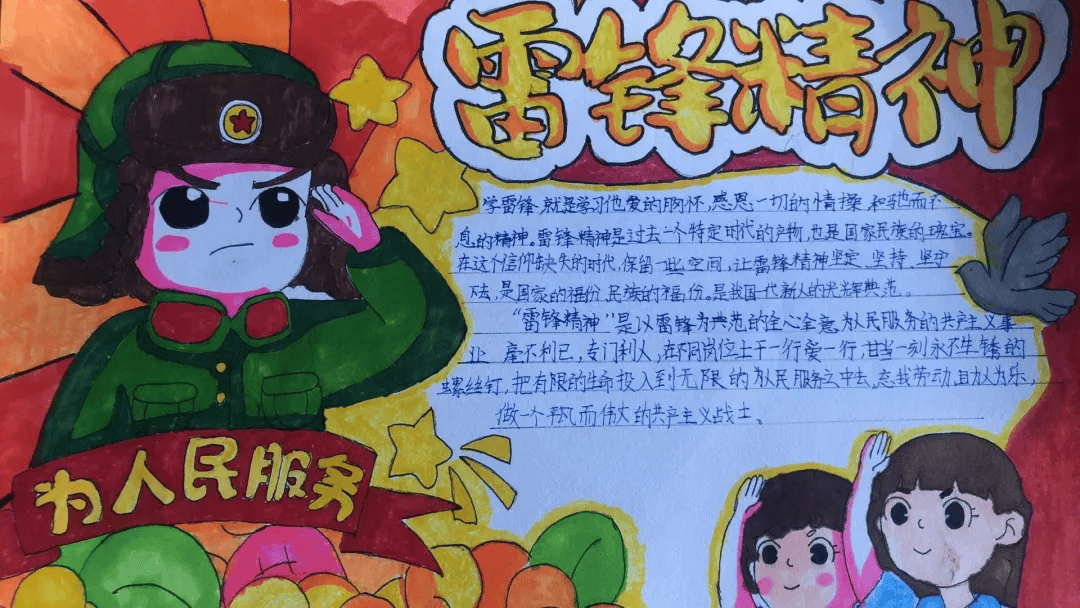 雷锋精神
学雷锋就是学习他爱的胸怀,感恩一切的情操,和驰而不
息的精神。雷锋精神是过去一个特定时代的产物,也是国家民族的瑰宝。
在这个信仰缺失的时代,保留一些空间,让雷锋精神坚定、坚持、坚守
下去,是国家的福份,民族的福份。是我国一代新人的光辉典范。
“雷锋精神”是以雷锋为典范的全心全意为人民服务的共产主义事
业 毫不利己,专门利人,在不同岗位上干一行爱一行,甘当一刻永不生锈的
螺丝钉,把有限的生命投入到无限的为人民服务之中去,
做一个平凡而伟大的共产主义战士。
为人民服务